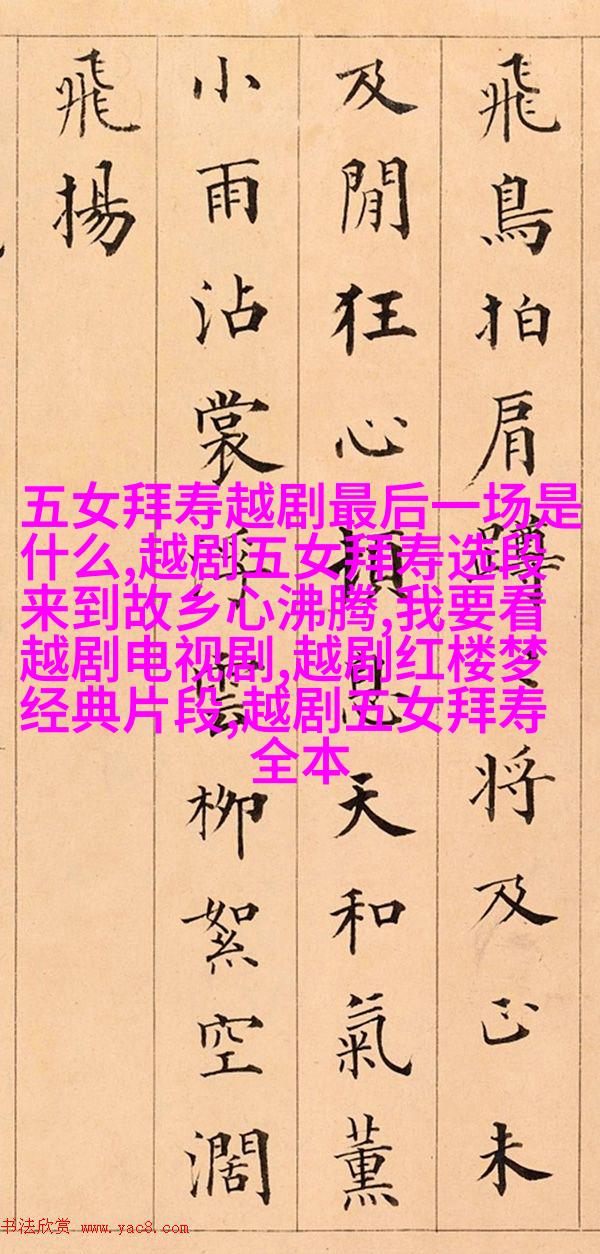 飛鳥拍肩蹲〻將及正未
及閒狂心頓息天和氣薰
小雨沾裳浮雲柳絮空闊
飛揚
五女拜寿越剧最后一场是
什么,越剧五女拜寿选段
来到故乡心沸腾,我要看
越剧电视剧,越剧红楼梦
经典片段,越剧五女拜寿
全本
书法欣赏 www.yac8.com